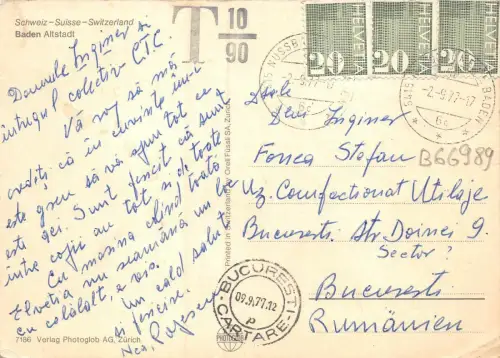 Schweiz - Suisse - Switzerland
Baden Altstadt
T 10/90
HELVETIA 20
HELVETIA 20
HELVETIA 20
5415 NUSSBAUMEN B. BADEN
-2.-9.77-17
Domnule Inginer și
întregul colectiv CTC.
Vă rog să mă
credeți că în cuvinte
este greu să vă spun tot ce
este aci. Sunt fericit că sunt
între copii au tot și de toate
Cu mașina chiar toată
Elveția nu seamănă un loc
cu celălalt, e vis.
un cald salut
și fericire.
Popescu
Printed in Switzerland by Orell Füssli SA, Zürich
Inginer
Fonea Stefan
B66989
Uz. Confectionat Utilaje
Bucuresti. Str. Doinei 9
Sector?
Bucuresti
Rumänien
BUCURESTI
09.9.77.12
CARTARE-I
7186 Verlag Photoglob AG, Zürich
PHOTOGLOB